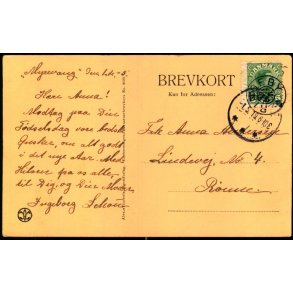 "Myrevang"
Kære Anna!
Modtag paa Din
Fødselsdag vore bedste
Ønsker, om alt godt
i det nye Aar. Med
Hilsen fra os alle
til Dig, og Din Moder
Ingeborg
BREVKORT
Kun for Adressen:
DANMARK
Frk Anna
Lindevej No 4.
Rønne